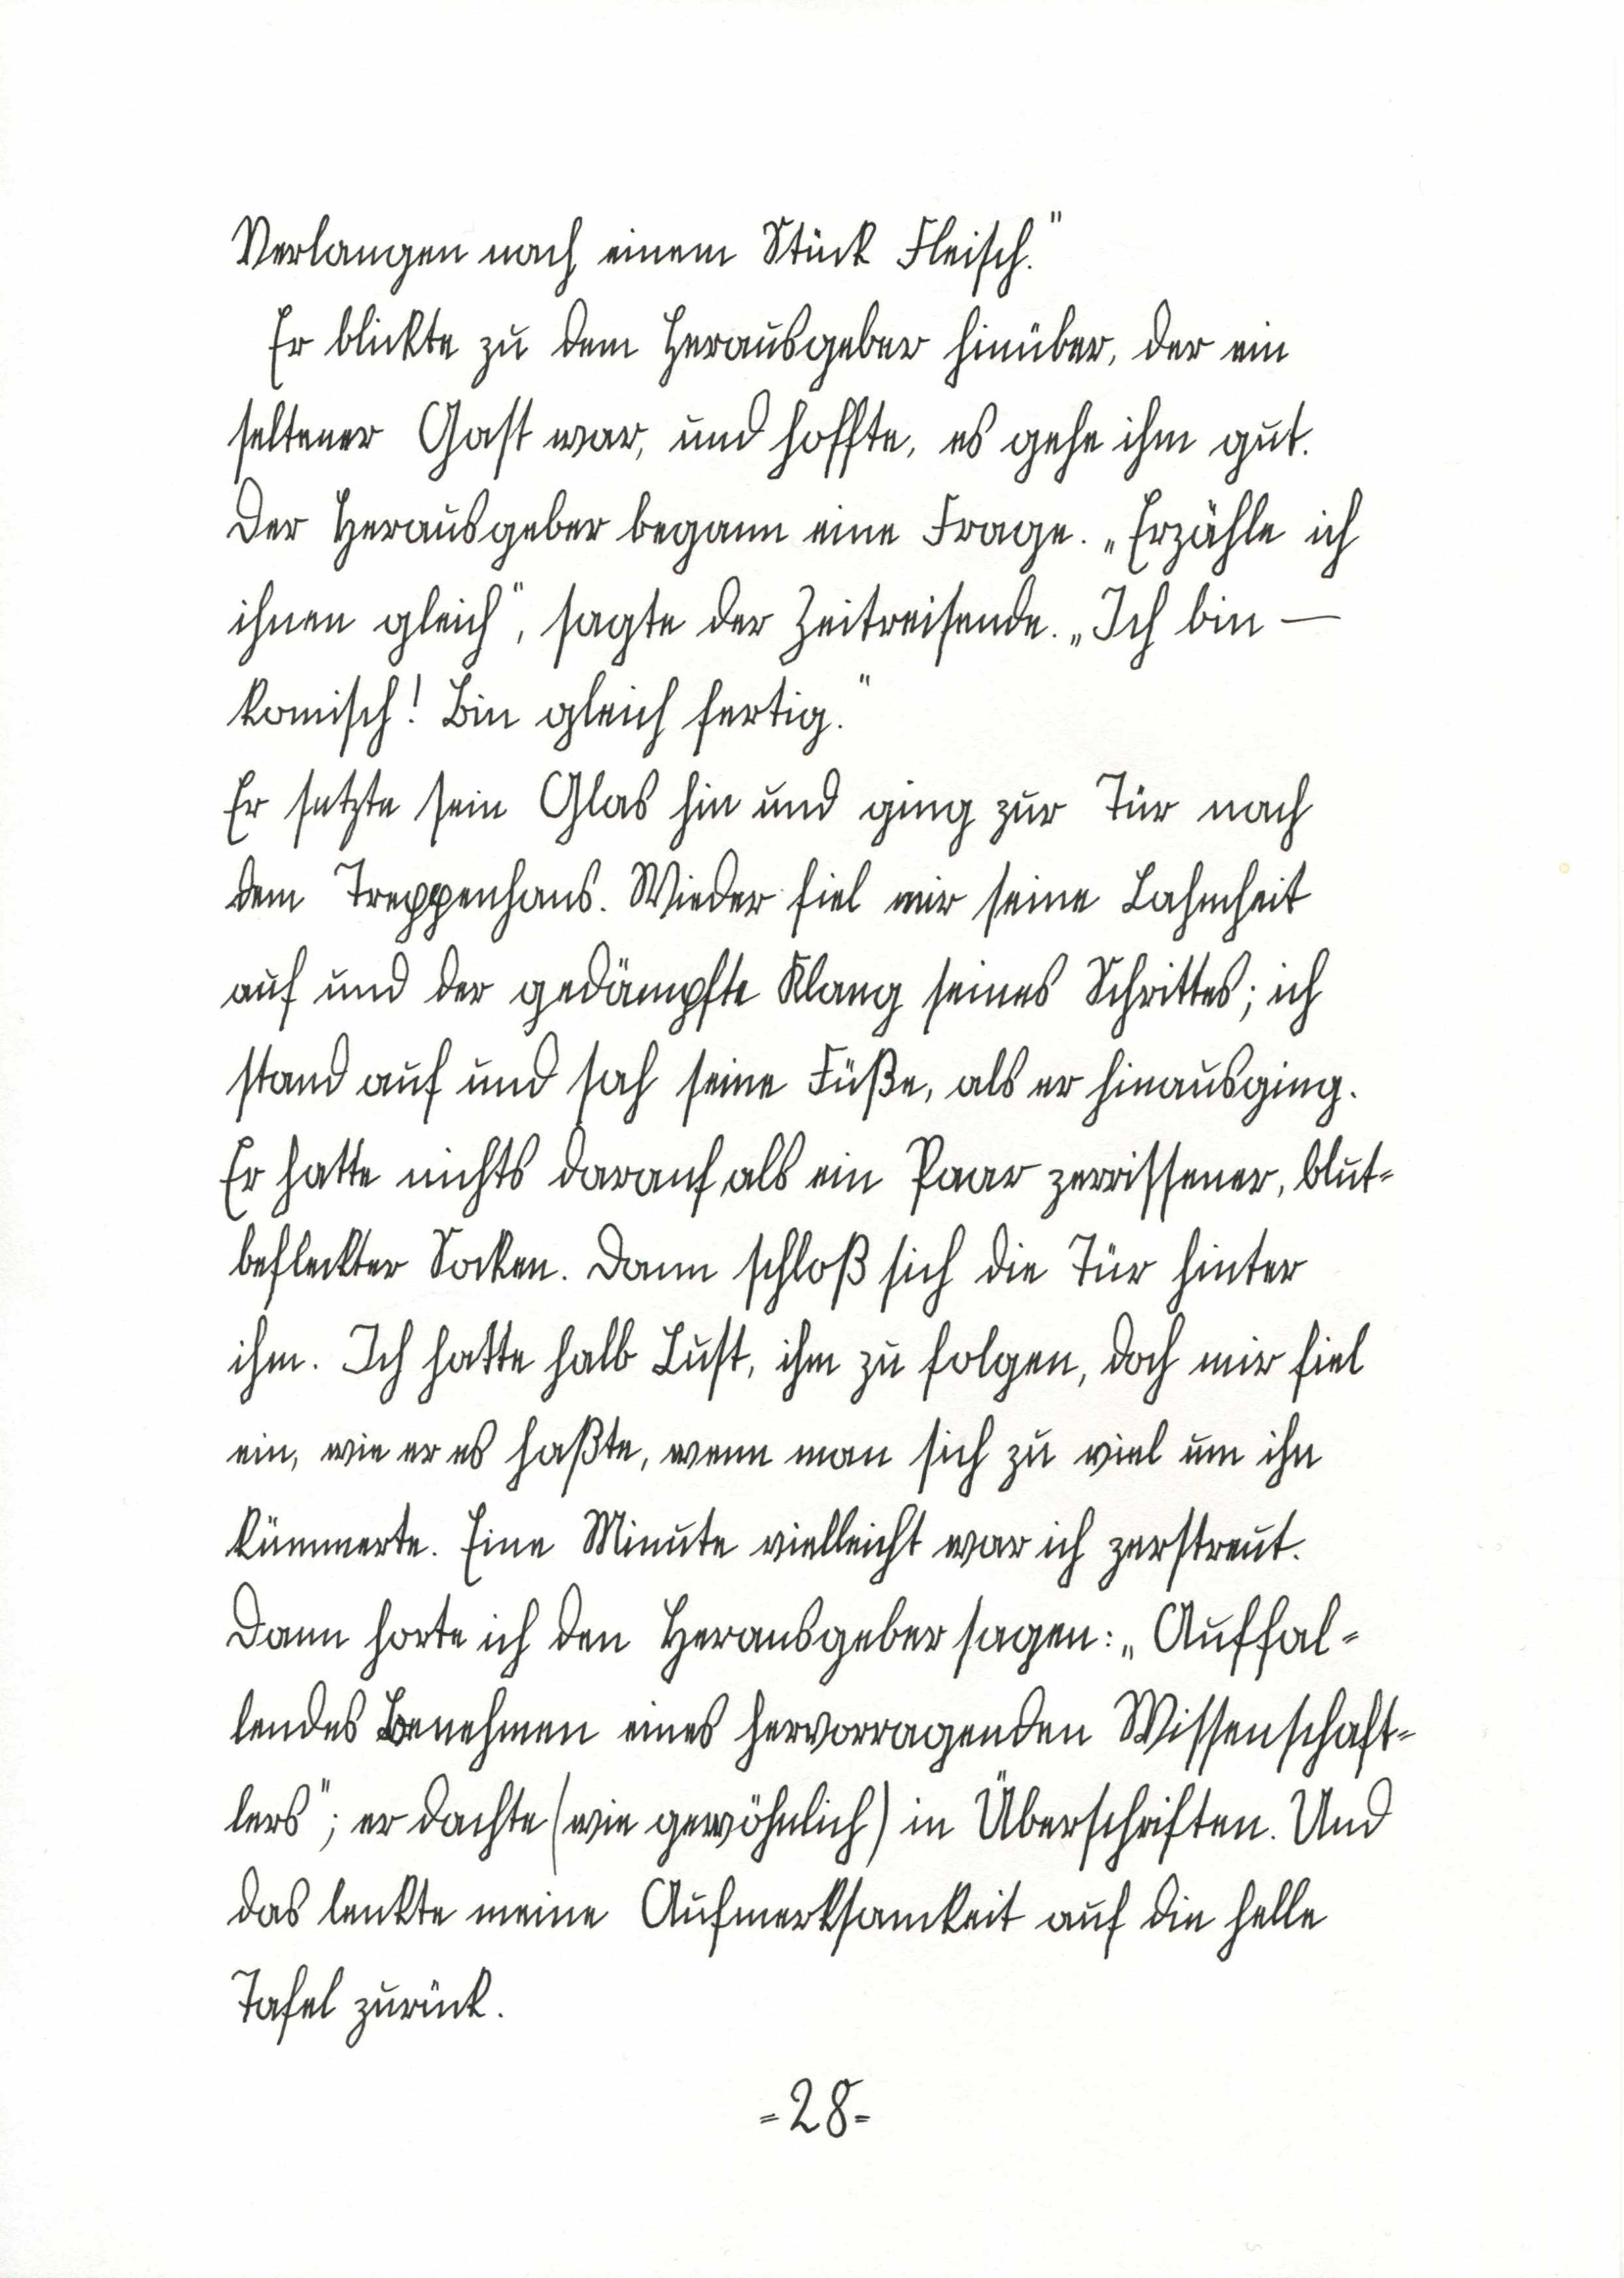 Verlangen nach einem Stück Fleisch."
Er blickte zu dem Herausgeber hinüber, der ein
seltener Gast war, und hoffte, es gehe ihm gut.
Der Herausgeber begann eine Frage. „Erzähle ich
ihnen gleich", sagte der Zeitreisende. „Ich bin —
komisch! Bin gleich fertig."
Er setzte sein Glas hin und ging zur Tür nach
dem Treppenhaus. Wieder fiel mir seine Lahmheit
auf und der gedämpfte Klang seines Schrittes; ich
stand auf und sah seine Füße, als er hinausging.
Er hatte nichts darauf als ein Paar zerrissener, blut-
befleckter Socken. Dann schloß sich die Tür hinter
ihm. Ich hatte halb Lust, ihm zu folgen, doch mir fiel
ein, wie er es haßte, wenn man sich zu viel um ihn
kümmerte. Eine Minute vielleicht war ich zerstreut.
Dann horte ich den Herausgeber sagen: „Auffal-
lendes Benehmen eines hervorragenden Wissenschaft-
lers"; er dachte (wie gewöhnlich) in Überschriften. Und
das lenkte meine Aufmerksamkeit auf die helle
Tafel zurück.
-28-